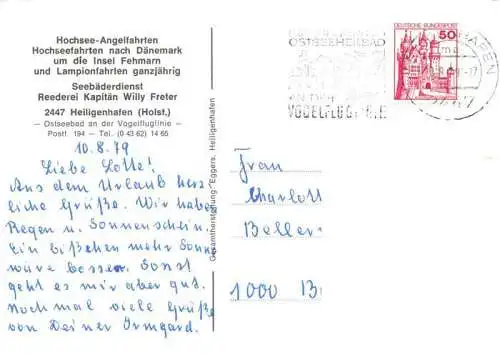 Hochsee-Angelfahrten
Hochseefahrten nach Dänemark
um die Insel Fehmarn
und Lampionfahrten ganzjährig
Seebäderdienst
Reederei Kapitän Willy Freter
2447 Heiligenhafen (Holst.)
– Ostseebad an der Vogelfluglinie –
Postf. 194 – Tel. (0 43 62) 14 65
10.8.79
Liebe Lotte!
Aus dem Urlaub herz-
liche Grüße. Wir haben
Regen u. Sonnenschein.
Ein bißchen mehr Sonne
wäre besser. Sonst
geht es mir aber gut.
Nochmal viele Grüße
von Deiner Irmgard.
Gesamtherstellung: Eggers, Heiligenhafen
OSTSEEHEILBAD
AN DER
VOGELFLUG
DEUTSCHE BUNDESPOST
50
HAFEN
Frau
Charlott
Beller
1000 B